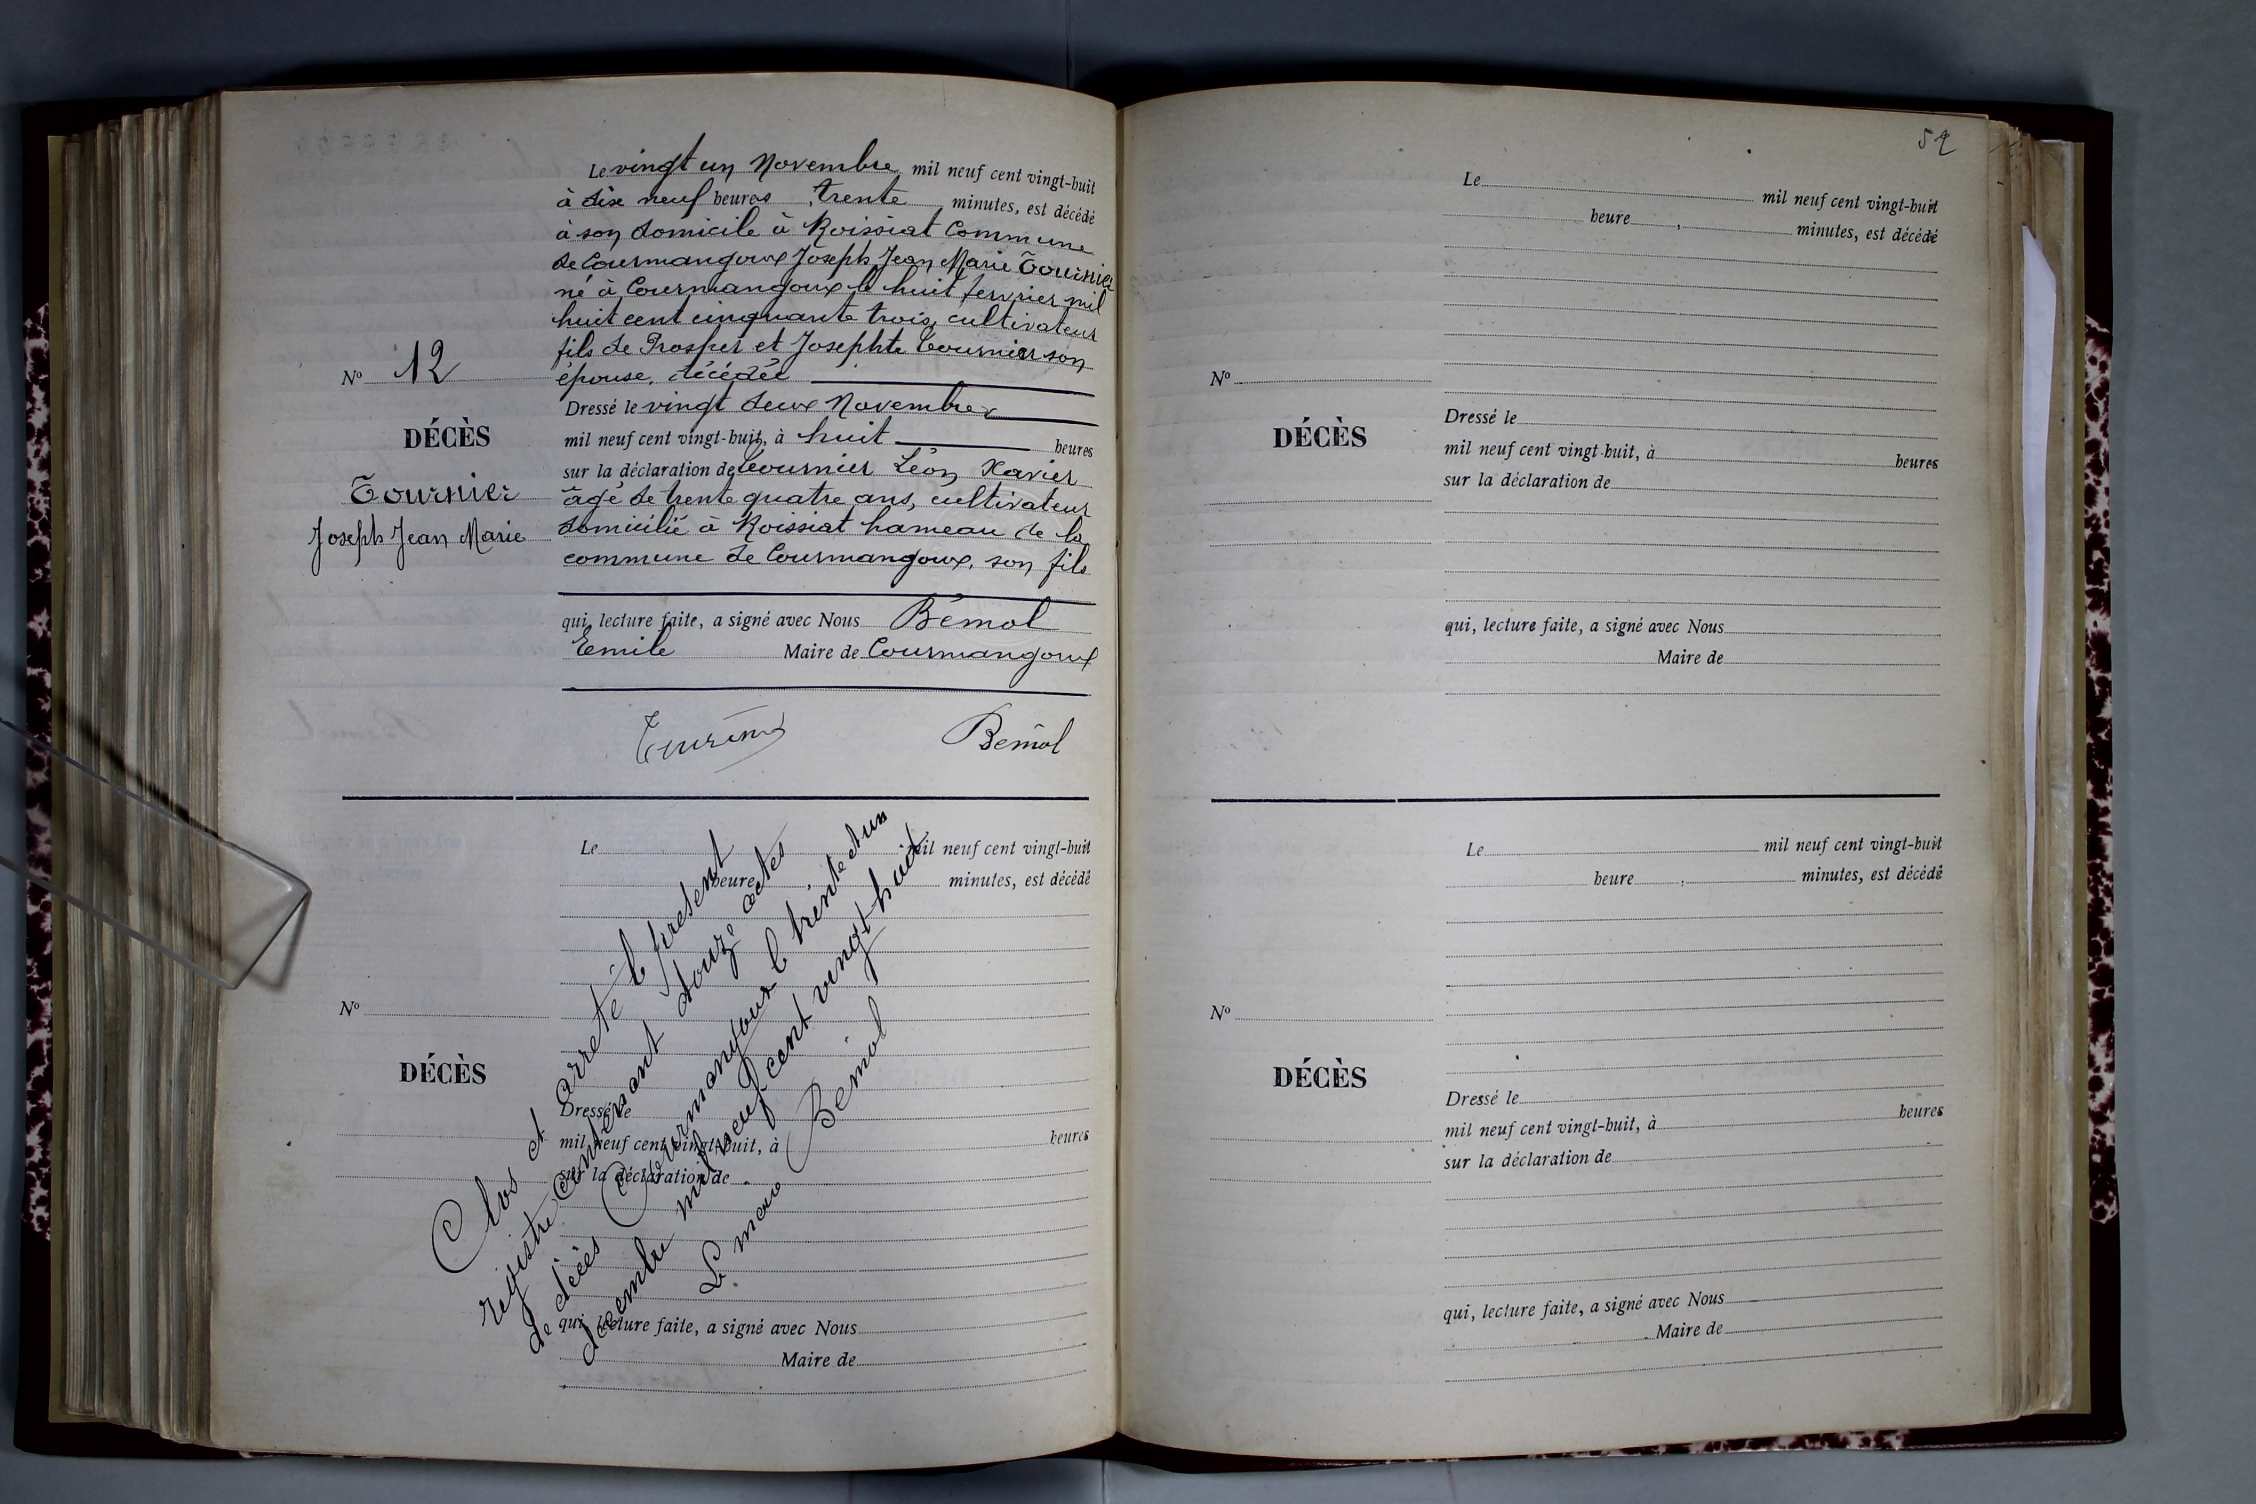 Le vingt un Novembre mil neuf cent vingt-huit
à dix neuf heures, trente minutes, est décédé
à son domicile à Roissiat Commune
de Courmangoux Joseph Jean Marie Tournier
né à Courmangoux le huit fervrier mil
huit cent cinquante trois, cultivateur
fils de Prosper et Josephte Tournier son
épouse, décédée
Dressé le vingt deux Novembre
mil neuf cent vingt-huit, à huit heures
sur la déclaration de Tournier Léon Xavier
âgé de trente quatre ans, cultivateur
domicilié à Roissiat hameau de la
commune de Courmangoux, son fils
qui, lecture faite, a signé avec Nous Bémol
Emile Maire de Courmangoux
Bémol
No 12
DÉCÈS
Tournier
Joseph Jean Marie
Le mil neuf cent vingt-huit
heure minutes, est décédé
No
DÉCÈS
Dressé le
mil neuf cent vingt-huit, à heures
sur la déclaration de
qui, lecture faite, a signé avec Nous
Maire de
Clos et arrêté le présent
registre contenant douze actes
de décès Courmangoux le trente et un
décembre mil neuf cent vingt huit
Le maire Bémol
52
Le mil neuf cent vingt-huit
heure, minutes, est décédé
No
DÉCÈS
Dressé le
mil neuf cent vingt-huit, à heures
sur la déclaration de
qui, lecture faite, a signé avec Nous
Maire de
Le mil neuf cent vingt-huit
heure, minutes, est décédé
No
DÉCÈS
Dressé le
mil neuf cent vingt-huit, à heures
sur la déclaration de
qui, lecture faite, a signé avec Nous
Maire de